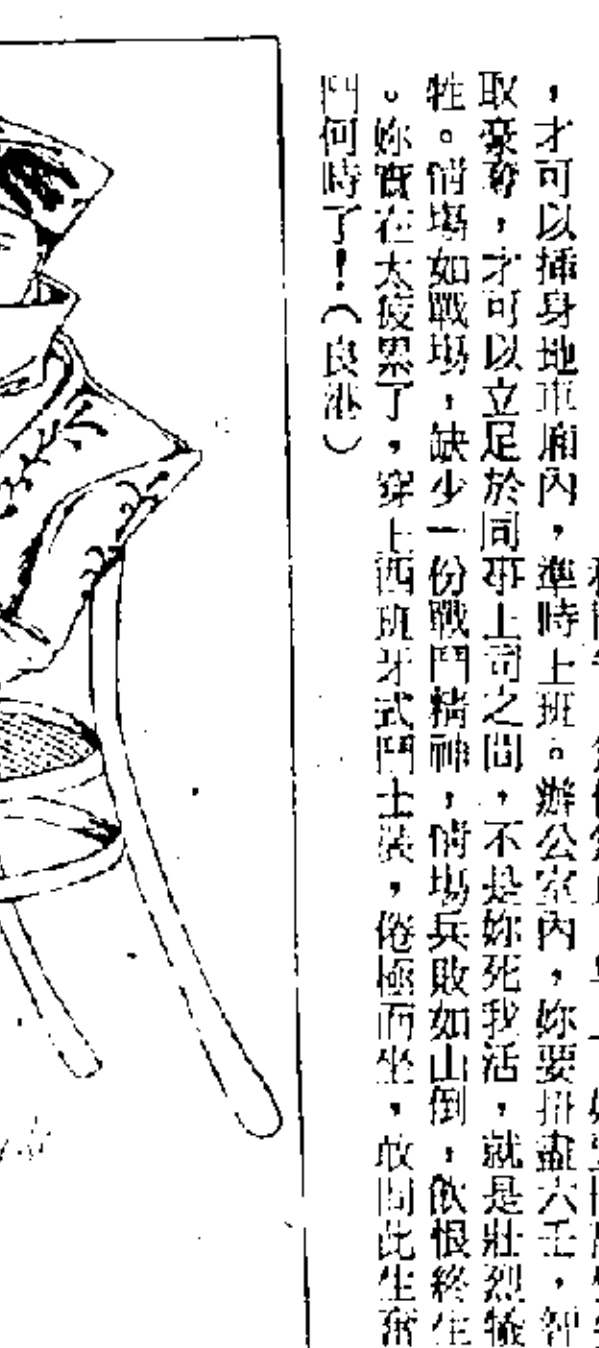 ，才可以插身地車廂內，準時上班。辦公室內，妳要拼盡六壬，智
取豪奪，才可以立足於同事上司之間，不是妳死我活，就是壯烈犧
牲。情場如戰場，缺少一份戰鬥精神，情場兵敗如山倒，飲恨終生
。妳實在太疲累了，穿上西班牙式鬥士裝，倦極而坐，敢問此生奮
鬥何時了！（良港）